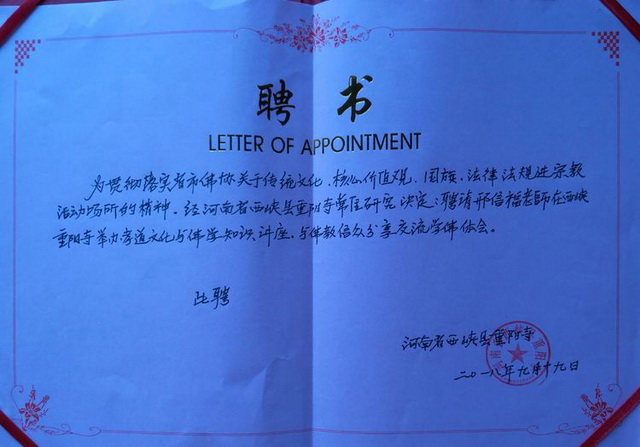 聘书
LETTER OF APPOINTMENT
为贯彻落实省市佛协关于传统文化、核心价值观、国旗、法律法规进宗教
活动场所的精神。经河南省西峡县重阳寺常住研究决定：聘请邢信福老师在西峡
重阳寺举办孝道文化与佛学知识讲座，与佛教信众分享交流学佛体会。
此聘
河南省西峡县重阳寺
二〇一八年九月十九日